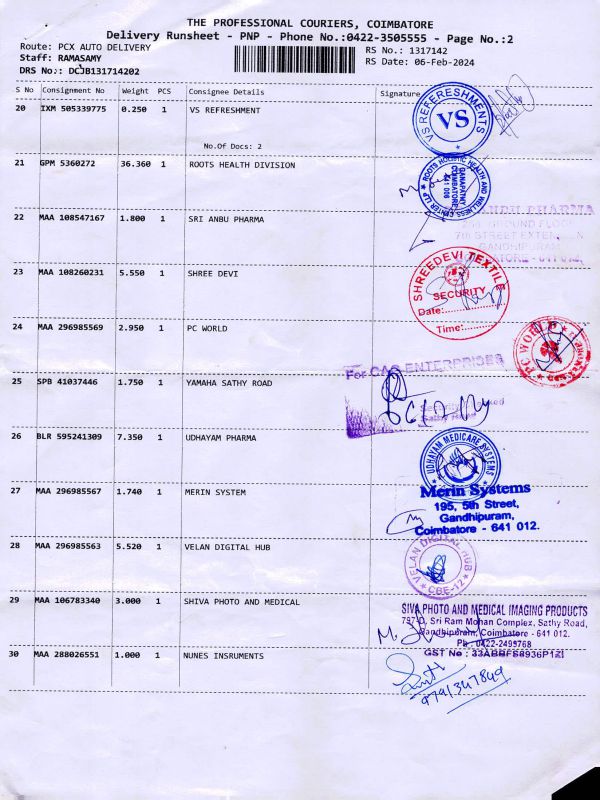 THE PROFESSIONAL COURIERS, COIMBATORE
Delivery Runsheet - PNP - Phone No.:0422-3505555 - Page No.:2
Route: PCX AUTO DELIVERY
RS No.: 1317142
Staff: RAMASAMY
RS Date: 06-Feb-2024
DRS No.: DCJB131714202
S No Consignment No Weight PCS Consignee Details Signature
20 IXM 505339775 0.250 1 VS REFRESHMENT
No.Of Docs: 2
VS REFERESHMENTS
VS
21 GPM 5360272 36.360 1 ROOTS HEALTH DIVISION
ROOTS HOLISTIC HEALTH AND WELLNESS CENTER LLP
GANAPATHY
COIMBATORE
641 006
22 MAA 108547167 1.800 1 SRI ANBU PHARMA
PHARMA
GROUND FLOOR
7th STREET EXTENSION
GANDHIPURAM
23 MAA 108260231 5.550 1 SHREE DEVI
SHREEDEVI TEXTILE
SECURITY
Date:
Time:
24 MAA 296985569 2.950 1 PC WORLD
PC WORLD
25 SPB 41037446 1.750 1 YAMAHA SATHY ROAD
For CAG ENTERPRISES
26 BLR 595241309 7.350 1 UDHAYAM PHARMA
UDHAYAM MEDICARE SYSTEMS
27 MAA 296985567 1.740 1 MERIN SYSTEM
Merin Systems
195, 5th Street,
Gandhipuram,
Coimbatore - 641 012.
28 MAA 296985563 5.520 1 VELAN DIGITAL HUB
VELAN DIGITAL HUB
CBE-12
29 MAA 106783340 3.000 1 SHIVA PHOTO AND MEDICAL
SIVA PHOTO AND MEDICAL IMAGING PRODUCTS
797-D, Sri Ram Mohan Complex, Sathy Road,
Gandhipuram, Coimbatore - 641 012.
Ph : 0422-2495768
GST No : 33ABBFS8936P1ZI
30 MAA 288026551 1.000 1 NUNES INSRUMENTS